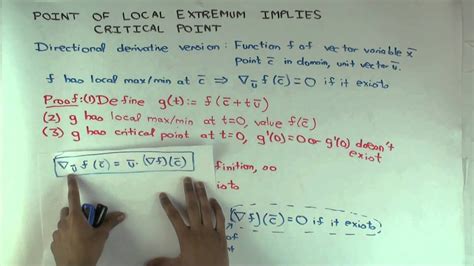 POINT OF LOCAL EXTREMUM IMPLIES
CRITICAL POINT
Directional derivative version: Function f of vector variable x̄
Point c̄ in domain, unit vector ū.
f has local max/min at c̄ ⇒ ∇ūf(c̄)=0 if it exists
Proof: (1) Define g(t):= f(c̄+tū)
(2) g has local max/min at t=0, value f(c̄)
(3) g has critical point at t=0, g'(0)=0 or g'(0) doesn't
exist
∇ū f(c̄) = ū·(∇f)(c̄)
finition, so
exists
(∇f)(c̄)=0 if it exists
of